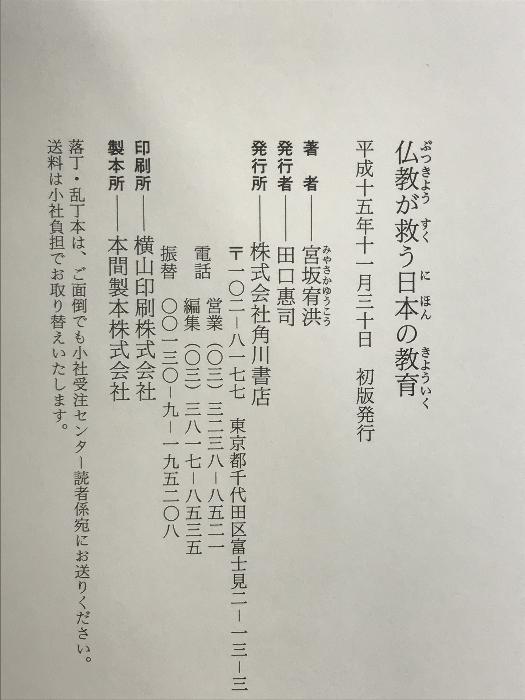 仏教が救う日本の教育
ぶつきよう すく にほん きよういく
平成十五年十一月三十日 初版発行
著 者――宮坂宥洪
みやさかゆうこう
発行者――田口惠司
発行所――株式会社角川書店
〒一〇二−八一七七 東京都千代田区富士見二−一三−三
営業(〇三)三二三八−八五二一
電話
編集(〇三)三八一七−八五三五
振替 〇〇一三〇−九−一九五二〇八
印刷所――横山印刷株式会社
製本所――本間製本株式会社
落丁・乱丁本は、ご面倒でも小社受注センター読者係宛にお送りください。
送料は小社負担でお取り替えいたします。